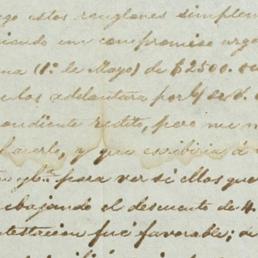 go estos renglones simplem
iendo un compromiso urge
na (1º de Mayo) de $2500.
los adelantara por
pondiente redito, pero me
hacerlo, y que escribia á
para ver si ellos que
ebajando el descuento de
testacion fué favorable; a